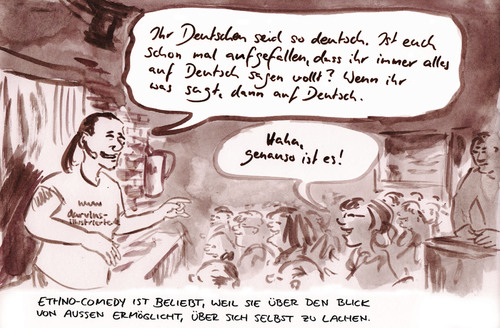 Ihr Deutschen seid so deutsch. Ist euch
schon mal aufgefallen, dass ihr immer alles
auf Deutsch sagen wollt? Wenn ihr
was sagt, dann auf Deutsch.
Haha,
genauso ist es!
darwins-
illustrierte
ETHNO-COMEDY IST BELIEBT, WEIL SIE ÜBER DEN BLICK
VON AUSSEN ERMÖGLICHT, ÜBER SICH SELBST ZU LACHEN.